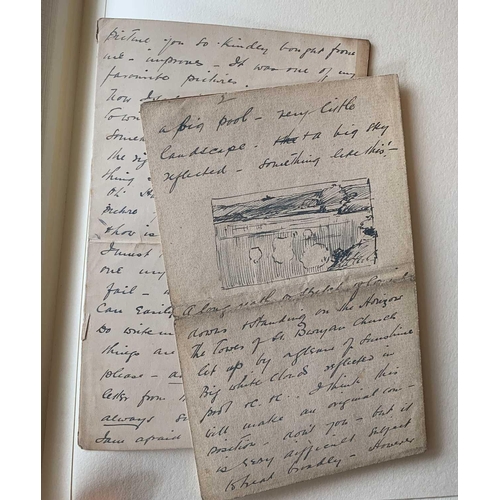 picture you so kindly bought from
me - improves - It was one of my
favourite pictures.
now I
Town
Some
the rig
thing
Oh
Metro
show is
I must
one my
fail -
Can Easily
Do write
things are
please - a
letter from
always
I am afraid
2
a big pool - very little
landscape - & a big sky
reflected - something like this! -
A long stretch of
downs & standing on the Horizon
The Tower of St. Buryan Church
lit up by a gleam of Sunshine
Big white Clouds reflected in
pool &c. &c.. I think this
will make an original com-
position - don't you - but it
is very difficult subject
to treat broadly - However